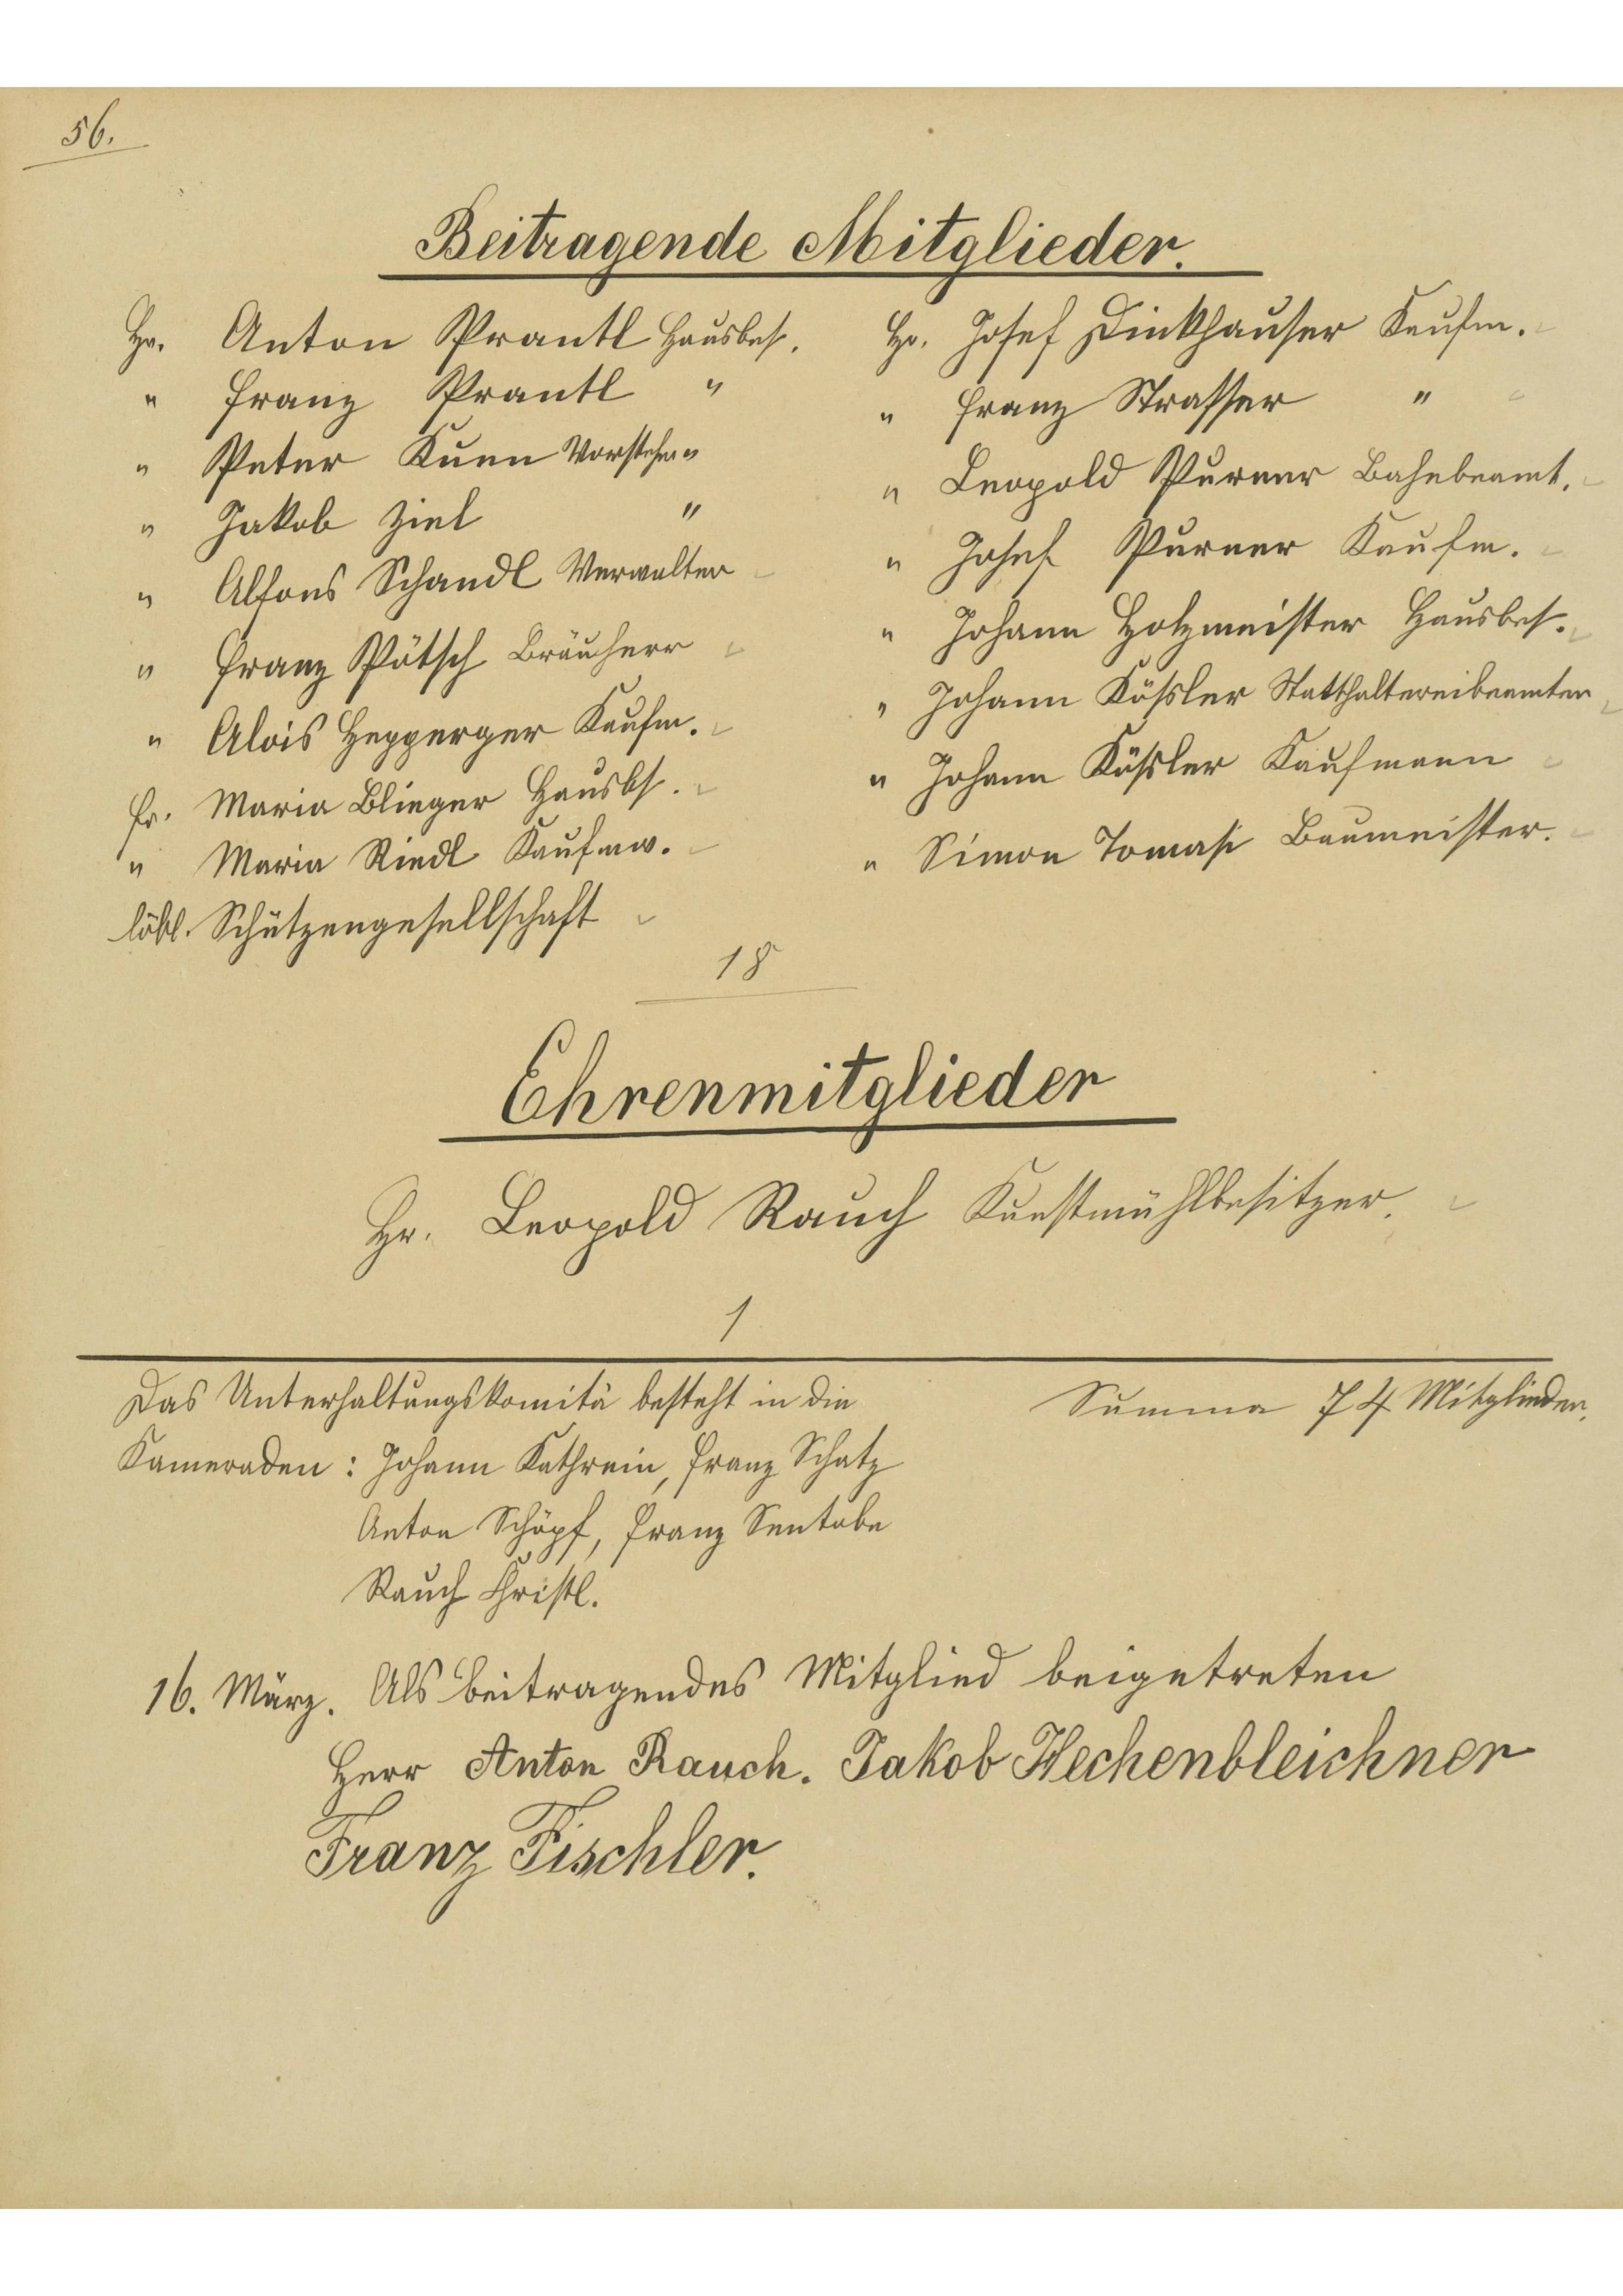 56.
Beitragende Mitglieder.
Hr. Anton Prantl Hausbes.
" Franz Prantl "
" Peter Kuen Vorsteher "
" Jakob Ziel "
" Alfons Schandl Verwalter
" Franz Pötsch Bräuherr
" Alois Hepperger Kaufm.
Fr. Maria Blieger Hausbs.
" Maria Riedl Kaufmw.
löbl. Schützengesellschaft
Hr. Josef Dinkhauser Kaufm.
" Franz Strasser "
" Leopold Purner Bahnbeamt.
" Josef Purner Kaufm.
" Johann Holzmeister Hausbes.
" Johann Kössler Statthaltereibeamter
" Johann Kössler Kaufmann
" Simon Tomasi Baumeister.
18
Ehrenmitglieder
Hr. Leopold Rauch Kunstmühlbesitzer.
1
Das Unterhaltungskomitä besteht in die
Summa 74 Mitglieder.
Kameraden : Johann Kathrein, Franz Schatz
Anton Schöpf, Franz Sentobe
Rauch Christl.
16. März. Als beitragendes Mitglied beigetreten
Herr Anton Rauch. Jakob Hechenbleichner
Franz Fischler.